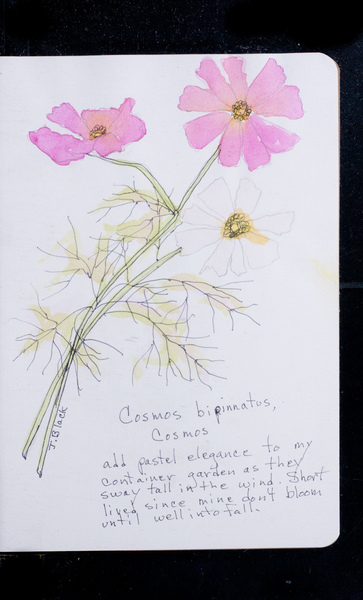 J. Black
Cosmos bipinnatus,
Cosmos
add pastel elegance to my
container garden as they
sway tall in the wind. Short
lived since mine don't bloom
until well into fall.